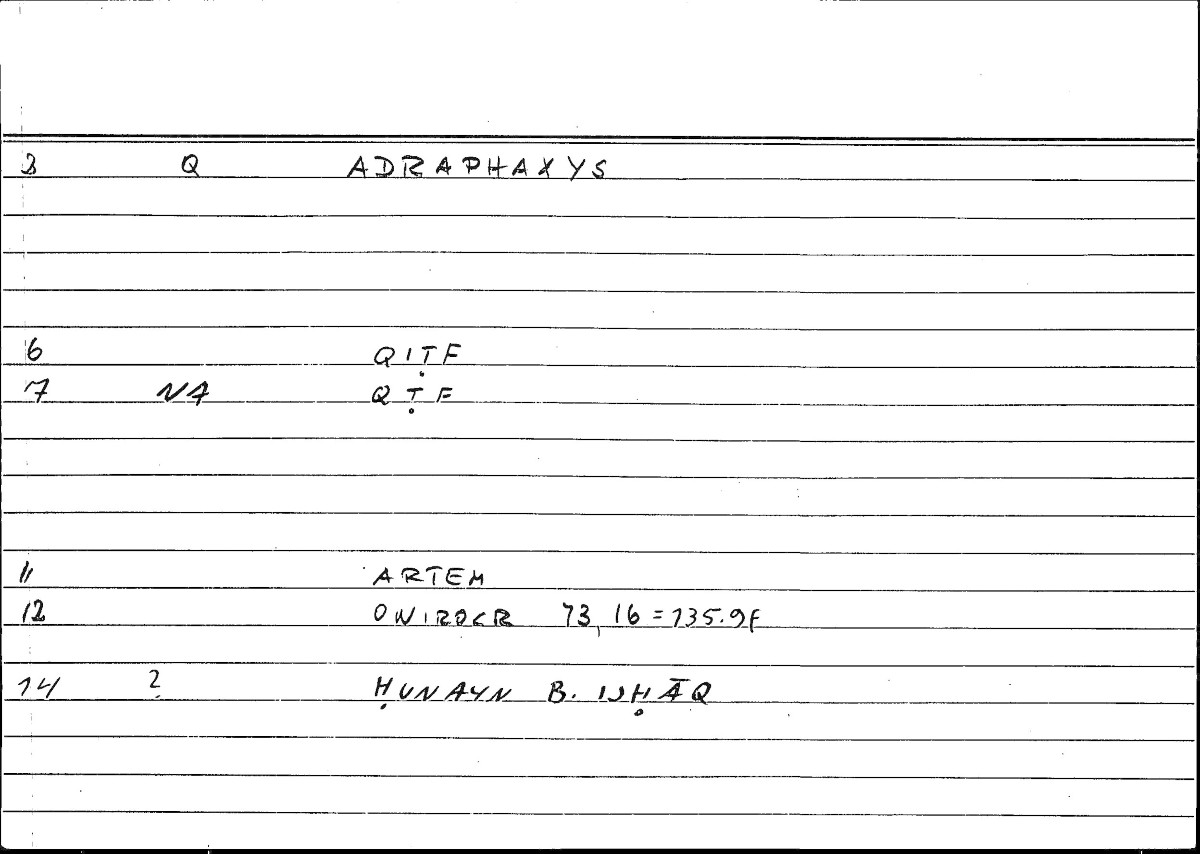 3 Q ADRAPHAXYS
6 QIṬF
7 NA QṬF
11 ARTEM
12 ONIROCR 73,16 = 135.9f
14 ? ḤUNAYN B. ISḤĀQ